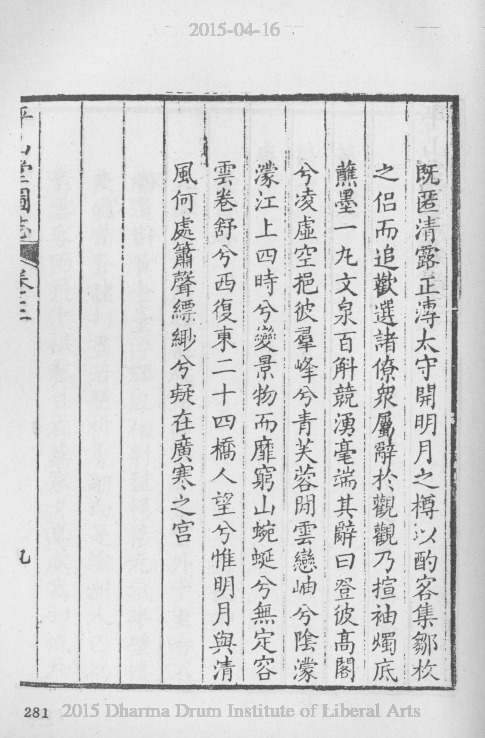 2015-04-16
既匿清露正漙太守開明月之樽以酌客集鄒枚
之侶而追歡選諸僚衆屬辭於觀觀乃揎袖燭底
蘸墨一丸文泉百斛競湧毫端其辭曰登彼高閣
兮凌虛空挹彼羣峰兮青芙蓉閉雲巒岫兮陰濛
濛江上四時兮變景物而靡窮山蜿蜒兮無定容
雲卷舒兮西復東二十四橋人望兮惟明月與清
風何處簫聲縹緲兮疑在廣寒之宫
平山堂圖志 卷三 九
281
2015 Dharma Drum Institute of Liberal Arts